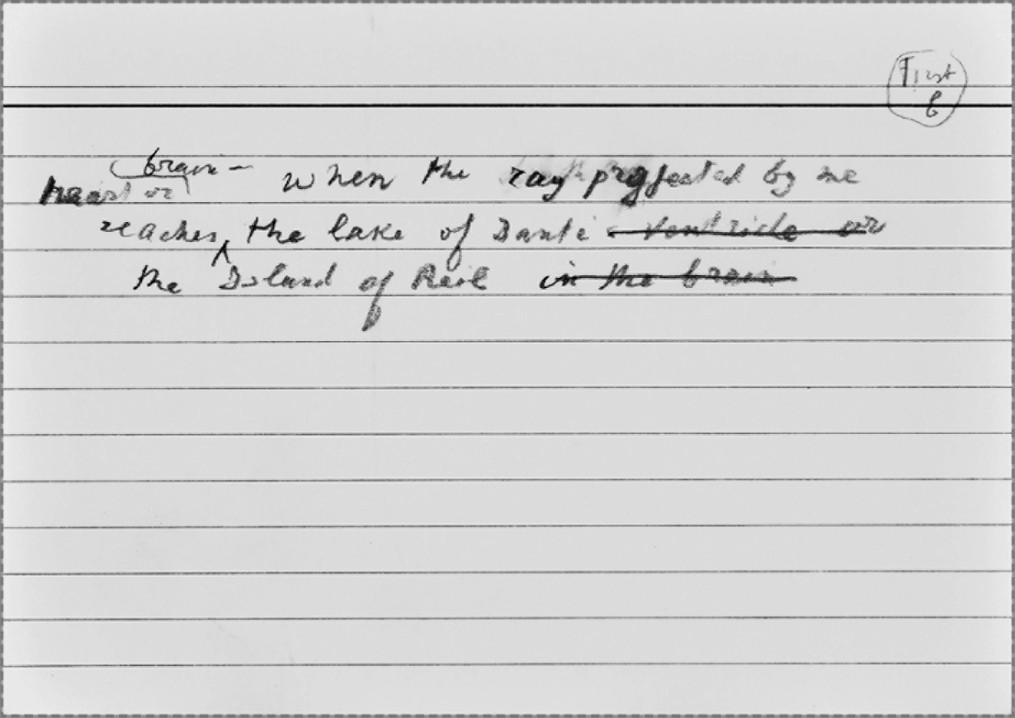 First
6
brain —
heart or when the ray projected by me
reaches, the lake of Dante ventricle or
the Island of Reil in the brain